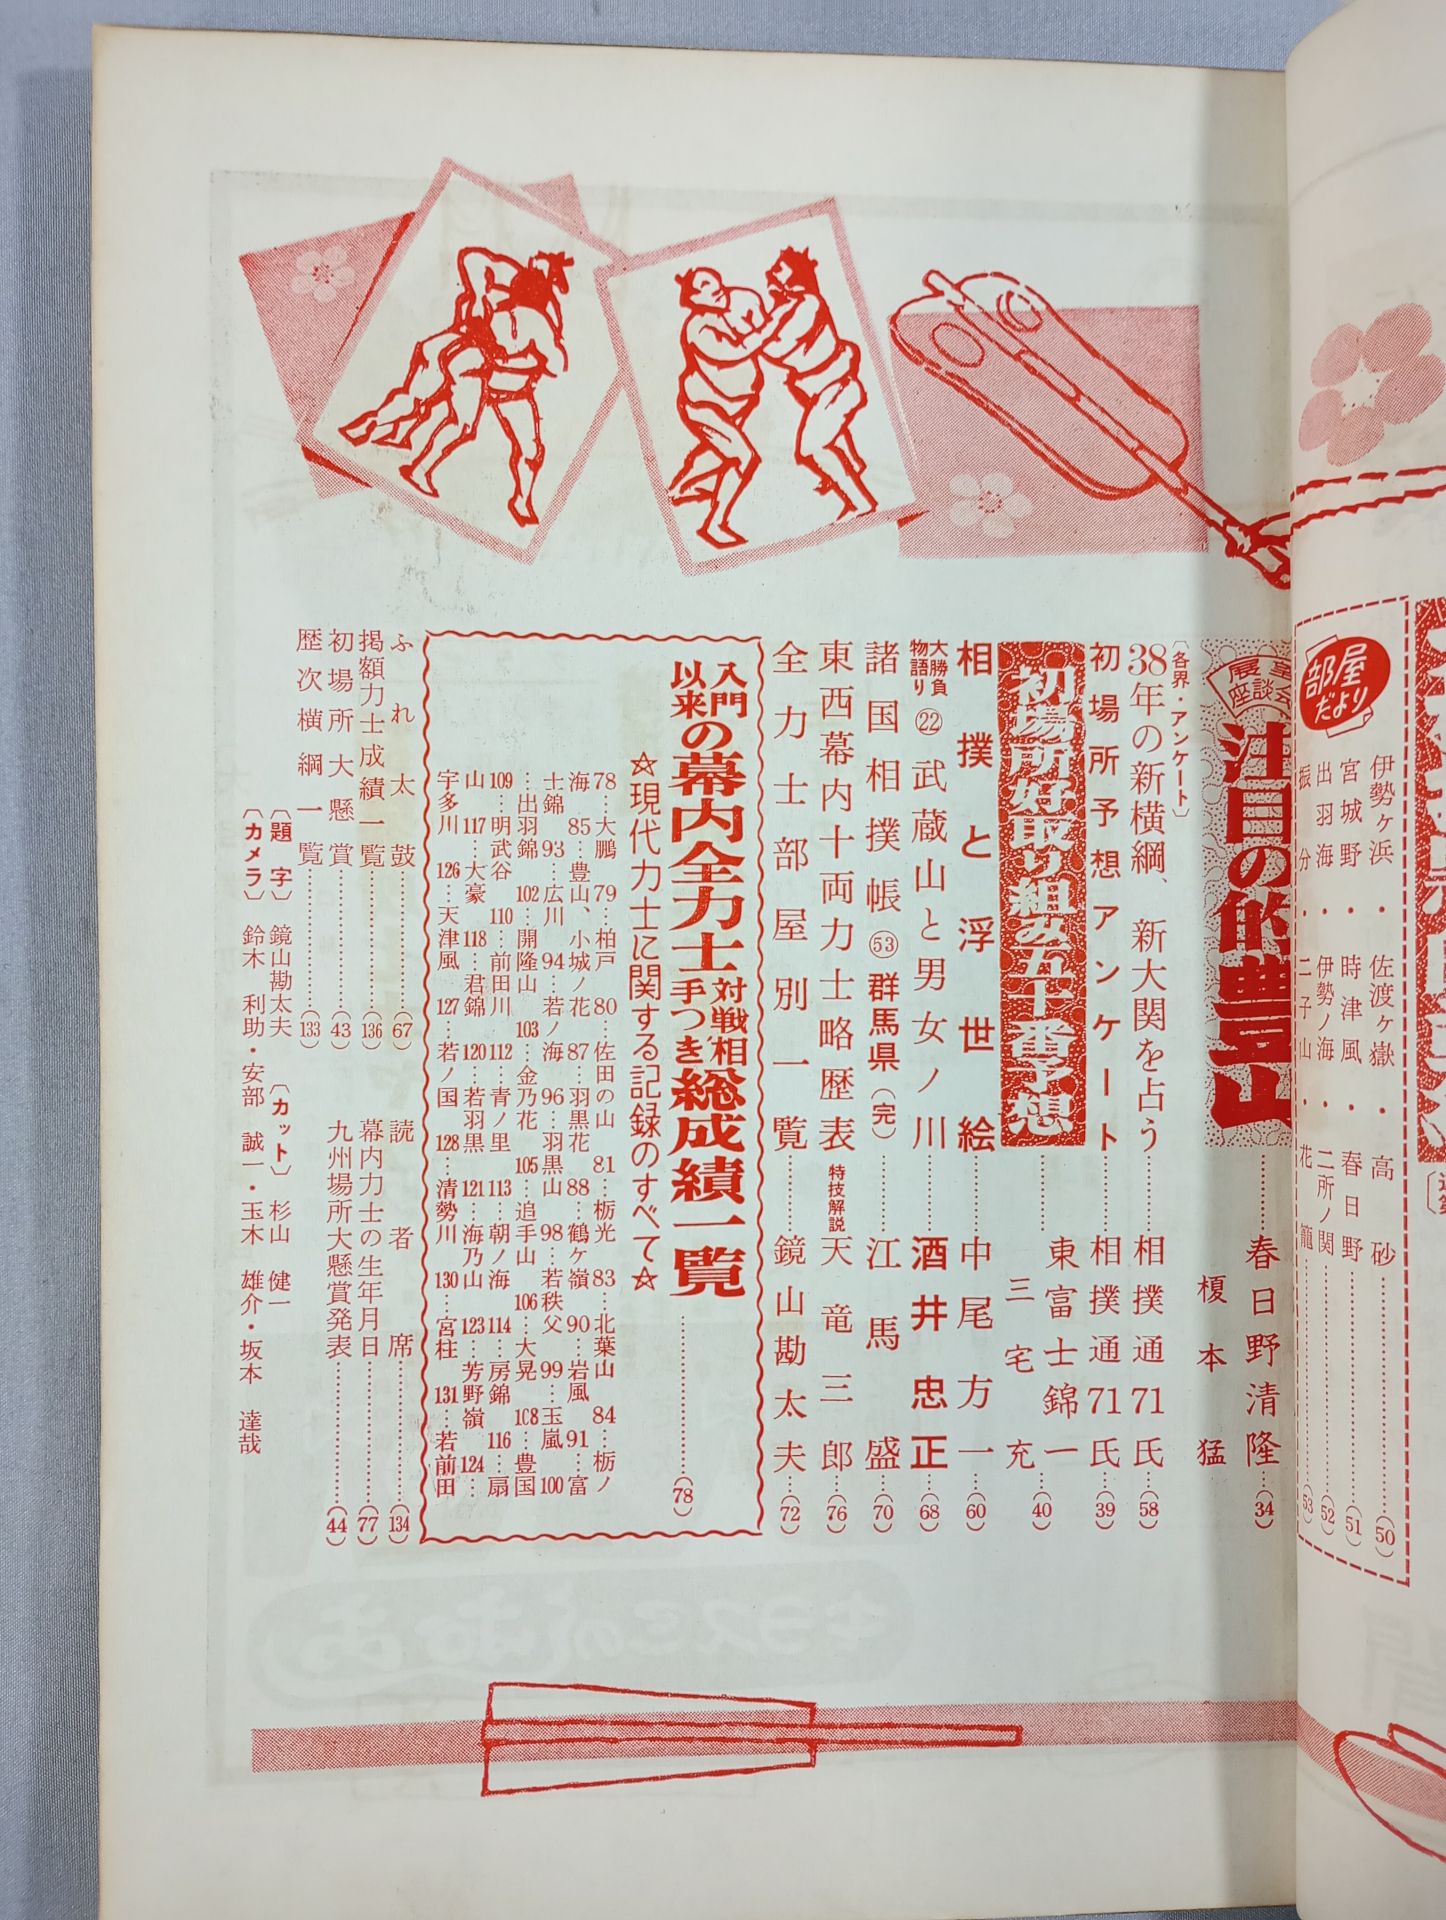 部屋だより
伊勢ヶ浜・佐渡ヶ嶽・高砂……(50)
宮城野・時津風・春日野……(51)
出羽海・伊勢ノ海・二所ノ関……(52)
振分・二子山・花籠……(53)
展望座談会
注目の的豊山……春日野清隆…(34)
榎本猛
〔各界・アンケート〕
38年の新横綱、新大関を占う……相撲通71氏…(58)
初場所予想アンケート……相撲通71氏…(39)
初場所好取り組み五十番予想……東富士錦一…(40)
三宅充
相撲と浮世絵……中尾方一…(60)
大勝負物語り㉒武蔵山と男女ノ川……酒井忠正…(68)
諸国相撲帳㊼群馬県(完)……江馬盛…(70)
東西幕内十両力士略歴表 特技解説 天竜三郎…(76)
全力士部屋別一覧……鏡山勘太夫…(72)
入門以来の幕内全力士対戦相手つき総成績一覧……(78)
☆現代力士に関する記録のすべて☆
78…大鵬 79…柏戸 80…佐田の山 81…栃光 83…北葉山 84…栃ノ
海 85…豊山、小城ノ花 87…羽黒花 88…鶴ヶ嶺 90…岩風 91…富
士錦 93…広川 94…若ノ海 96…羽黒山 98…若秩父 99…玉嵐 100
…出羽錦 102…開隆山 103…金乃花 105…追手山 106…大晃 108…豊国
109…明武谷 110…前田川 112…青ノ里 113…朝ノ海 114…房錦 116…扇
山 117…大豪 118…君錦 120…若羽黒 121…海乃山 123…芳野嶺 124…
宇多川 126…天津風 127…若ノ国 128…清勢川 130…宮柱 131…若前田
ふれ太鼓……(67) 読者席……(134)
掲額力士成績一覧……(136) 幕内力士の生年月日……(77)
初場所大懸賞……(43) 九州場所大懸賞発表……(44)
歴次横綱一覧……(133)
〔題字〕鏡山勘太夫 〔カット〕杉山健一
〔カメラ〕鈴木利助・安部誠一・玉木雄介・坂本達哉